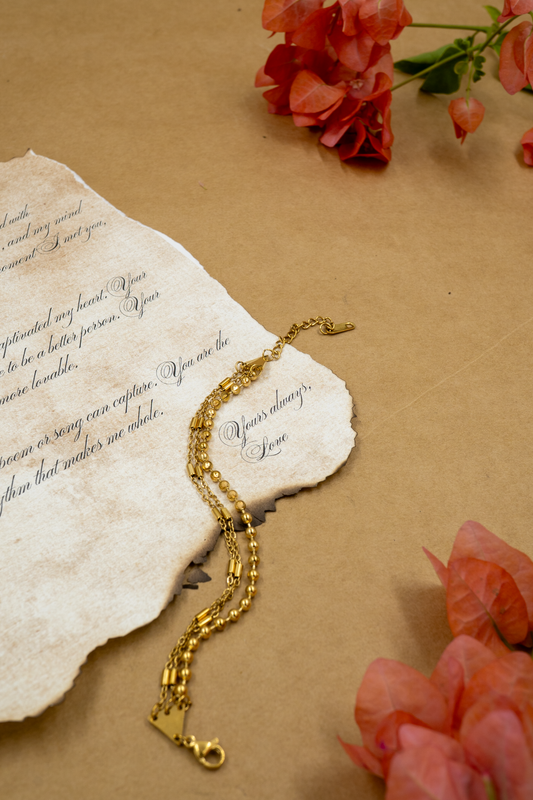 d with
, and my mind
oment I met you,
aptivated my heart. Your
e to be a better person. Your
more lovable.
poem or song can capture. You are the
ythm that makes me whole.
Yours always,
Love